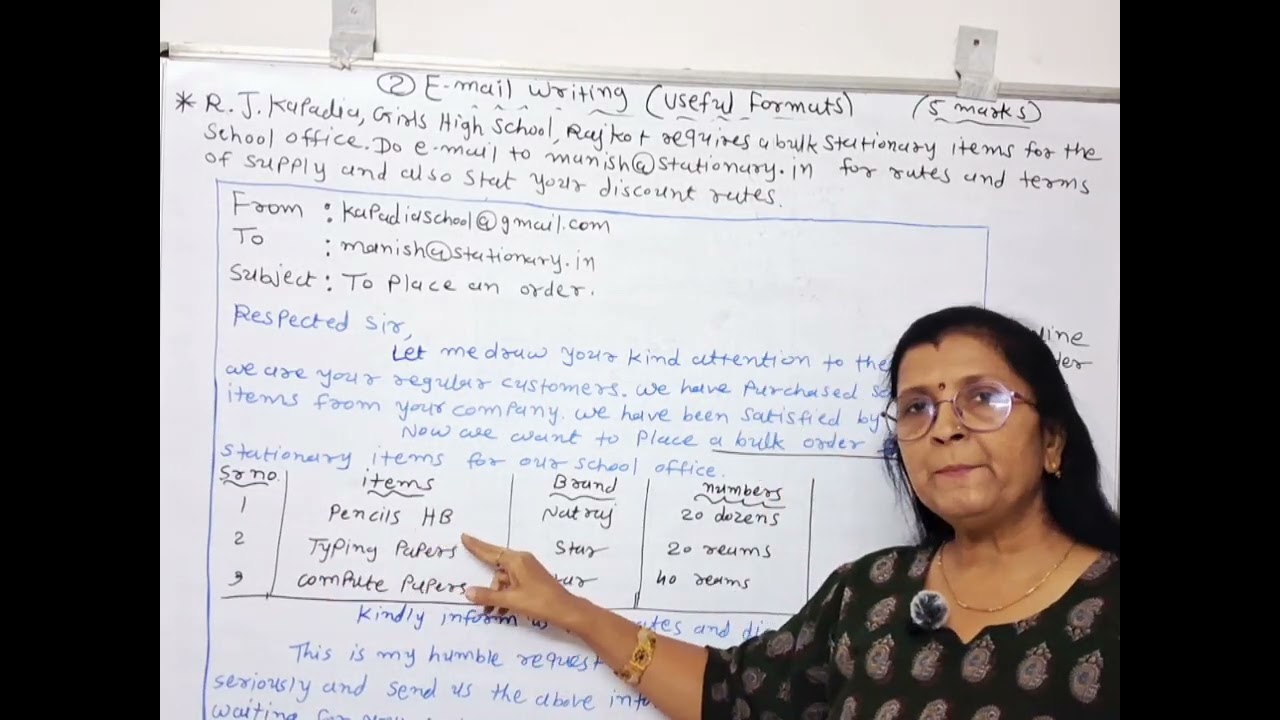 ② E-mail writing (useful formats) (5 marks)
* R. J. Kapadia, Girls High School, Rajkot requires a bulk stationary items for the
School office. Do e-mail to manish@stationary.in for rates and terms
of supply and also stat your discount rates.
From : kapadiaschool@gmail.com
To : manish@stationary.in
Subject : To place an order.
Respected Sir,
Let me draw your kind attention to the
we are your regular customers. we have purchased
items from your company. we have been satisfied by
Now we want to place a bulk order
stationary items for our school office.
Sr no. items Brand numbers
1 Pencils HB Natraj 20 dozens
2 Typing Papers Star 20 reams
3 Compute Papers 40 reams
Kindly inform and
This is my humble request
seriously and send us the above
waiting for